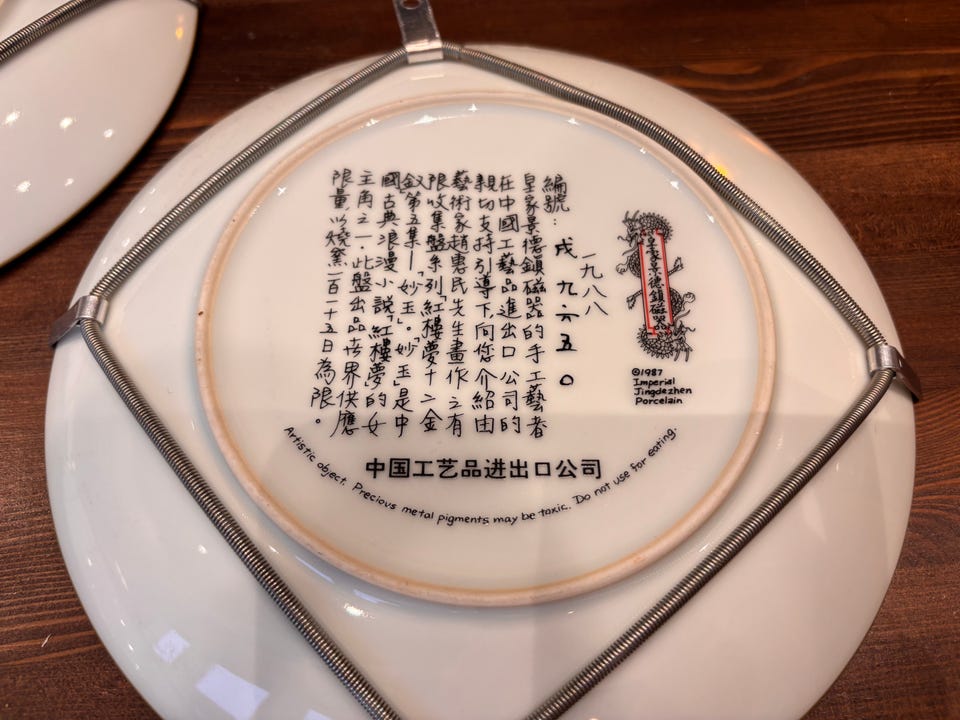 皇家景德鎮磁器
©1987
Imperial
Jingdezhen
Porcelain
一九八八
編號：戌九六五〇
皇家景德鎮磁器的手工藝者
在中國工藝品進出口公司的
親切支持引導下向您介紹由
藝術家趙惠民先生畫作之有
限收集盤系列「紅樓夢十二金
釵」第五集—「妙玉」。「妙玉」是中
國古典浪漫小說「紅樓夢」的女
主角之一．此盤出品世界供應
限量以燒窯一百一十五日為限。
中国工艺品进出口公司
Artistic object. Precious metal pigments may be toxic. Do not use for eating.